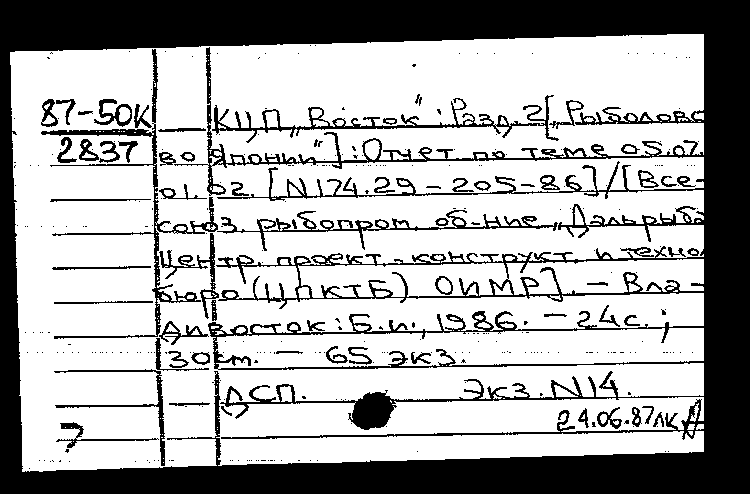 87-50К
2837
КЦП „Восток“: Разд. 2 [„Рыболовс
во Японии“]: Отчет по теме 05.07.
01.02. [N174.29-205-86]/[Все-
союз. рыбопром. об-ние „Дальрыба
Центр. проект.-конструкт. и техно
бюро (ЦПКТБ) ОИМР]. - Вла-
дивосток: Б.и., 1986. - 24с.;
30см. - 65 экз.
ДСП. Экз. N14.
24.06.87лк